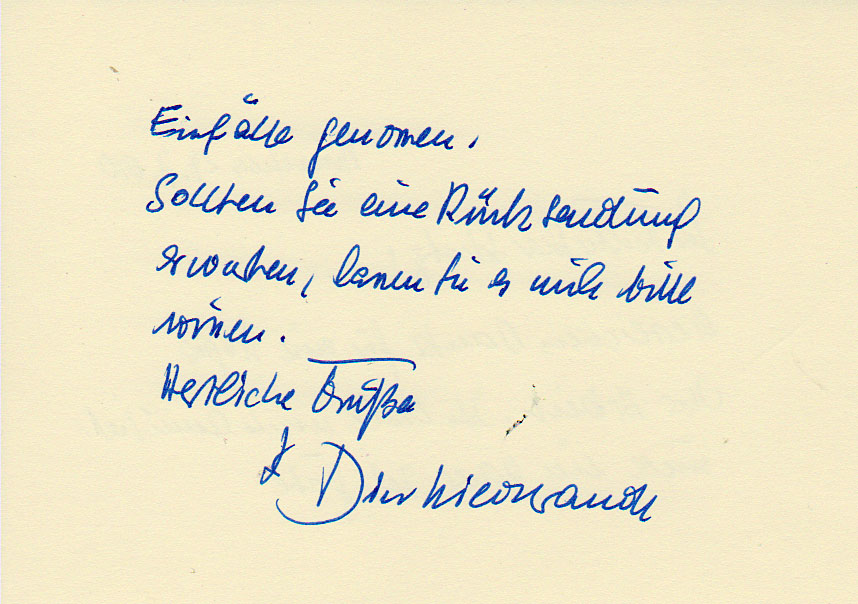 Einfälle genomen.
Sollten Sie eine Rücksendung
erwarten, lassen Sie es mich bitte
wissen.
Herzliche Grüße